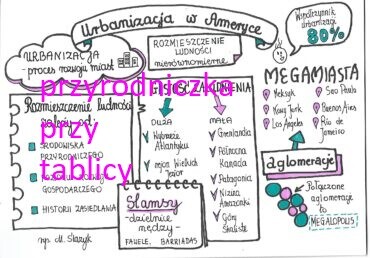 Urbanizacja w Ameryce
Współczynnik
urbanizacji
80%
URBANIZACJA
proces rozwoju miast
ROZMIESZCZENIE
LUDNOŚCI
nierównomierne
przyrodniczka
przy
tablicy
Rozmieszczenie ludności
zależy od:
ŚRODOWISKA
PRZYRODNICZEGO
GOSPODARCZEGO
HISTORII ZASIEDLANIA
ZALUDNIENIA
DUŻA
Wybrzeże
Atlantyku
rejon Wielkich
Jezior
MAŁA
Grenlandia
Północna
Kanada
Patagonia
Nizina
Amazonki
Góry
Skaliste
Slamsy
-dzielnice
nędzy-
FAWELE, BARRIADAS
MEGAMIASTA
Meksyk
Nowy Jork
Los Angeles
Sao Paulo
Buenos Aires
Rio de
Janeiro
aglomeracje
Połączone
aglomeracje
to
MEGALOPOLIS